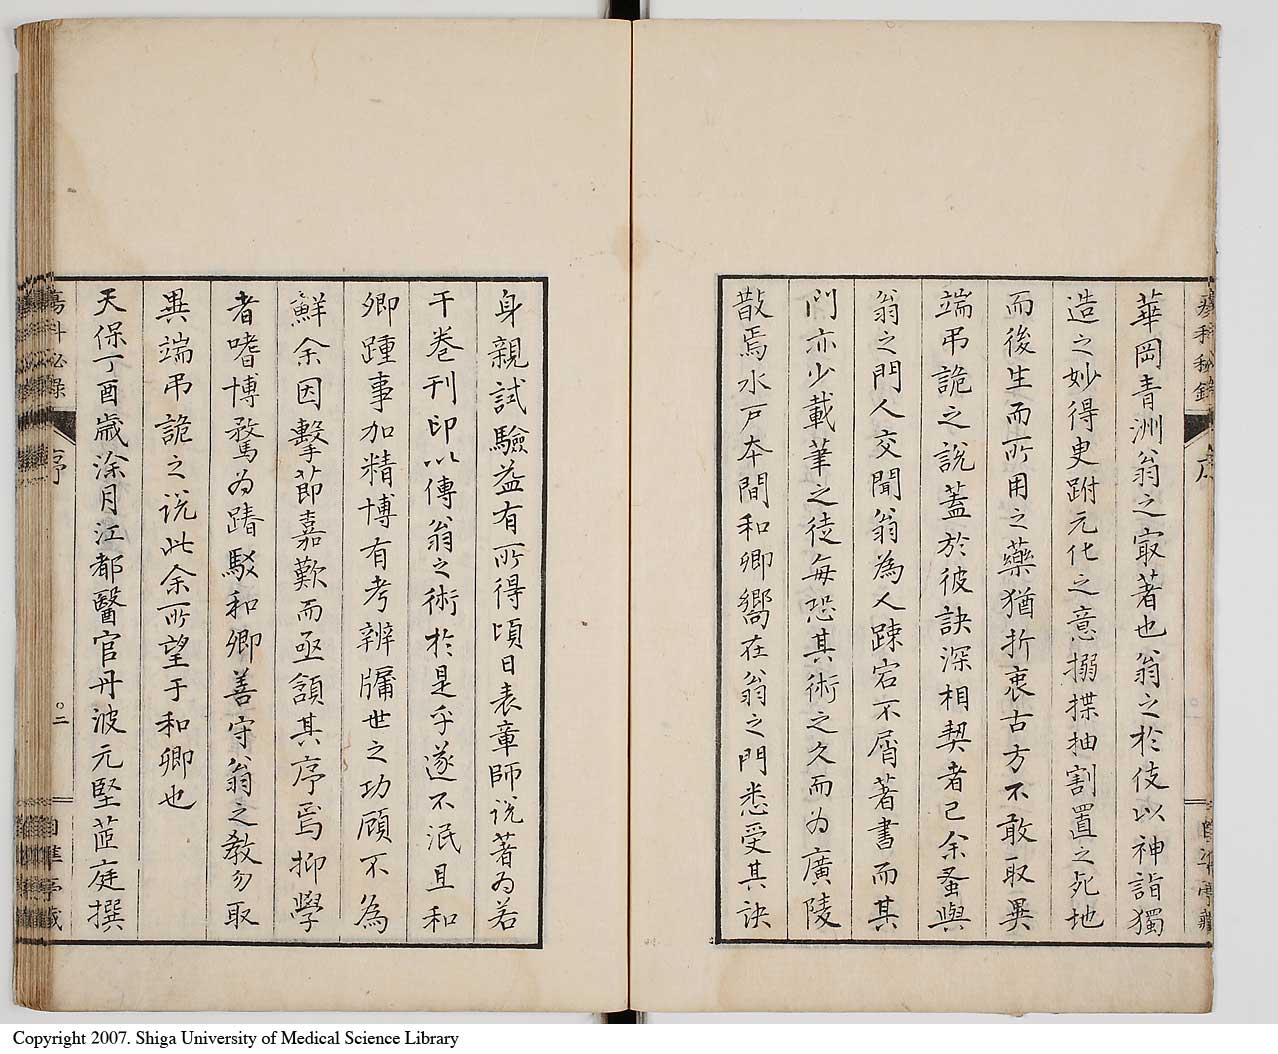 華岡青洲翁之㝡著也翁之於伎以神詣獨
造之妙得叟跗元化之意搦揲抽割置之死地
而後生而所用之藥猶折衷古方不敢取異
端弔詭之說蓋於彼訣深相契者已余蚤與
翁之門人交聞翁為人踈宕不屑著書而其
門亦少載筆之徒每恐其術之久而為廣陵
散焉水戶本間和卿嚮在翁之門悉受其訣
身親試驗益有所得頃日表章師说著为若
干卷刊印以傳翁之術於是乎遂不泯且和
卿踵事加精博有考辨牖世之功顧不為
鮮余因擊節嘉歎而亟頷其序焉抑學
者嗜博騖为踳駁和卿善守翁之教勿取
異端弔詭之说此余所望于和卿也
天保丁酉歲涂月江都醫官丹波元堅茝庭撰
瘍科秘錄
序
二
自準亭藏
Copyright 2007. Shiga University of Medical Science Library